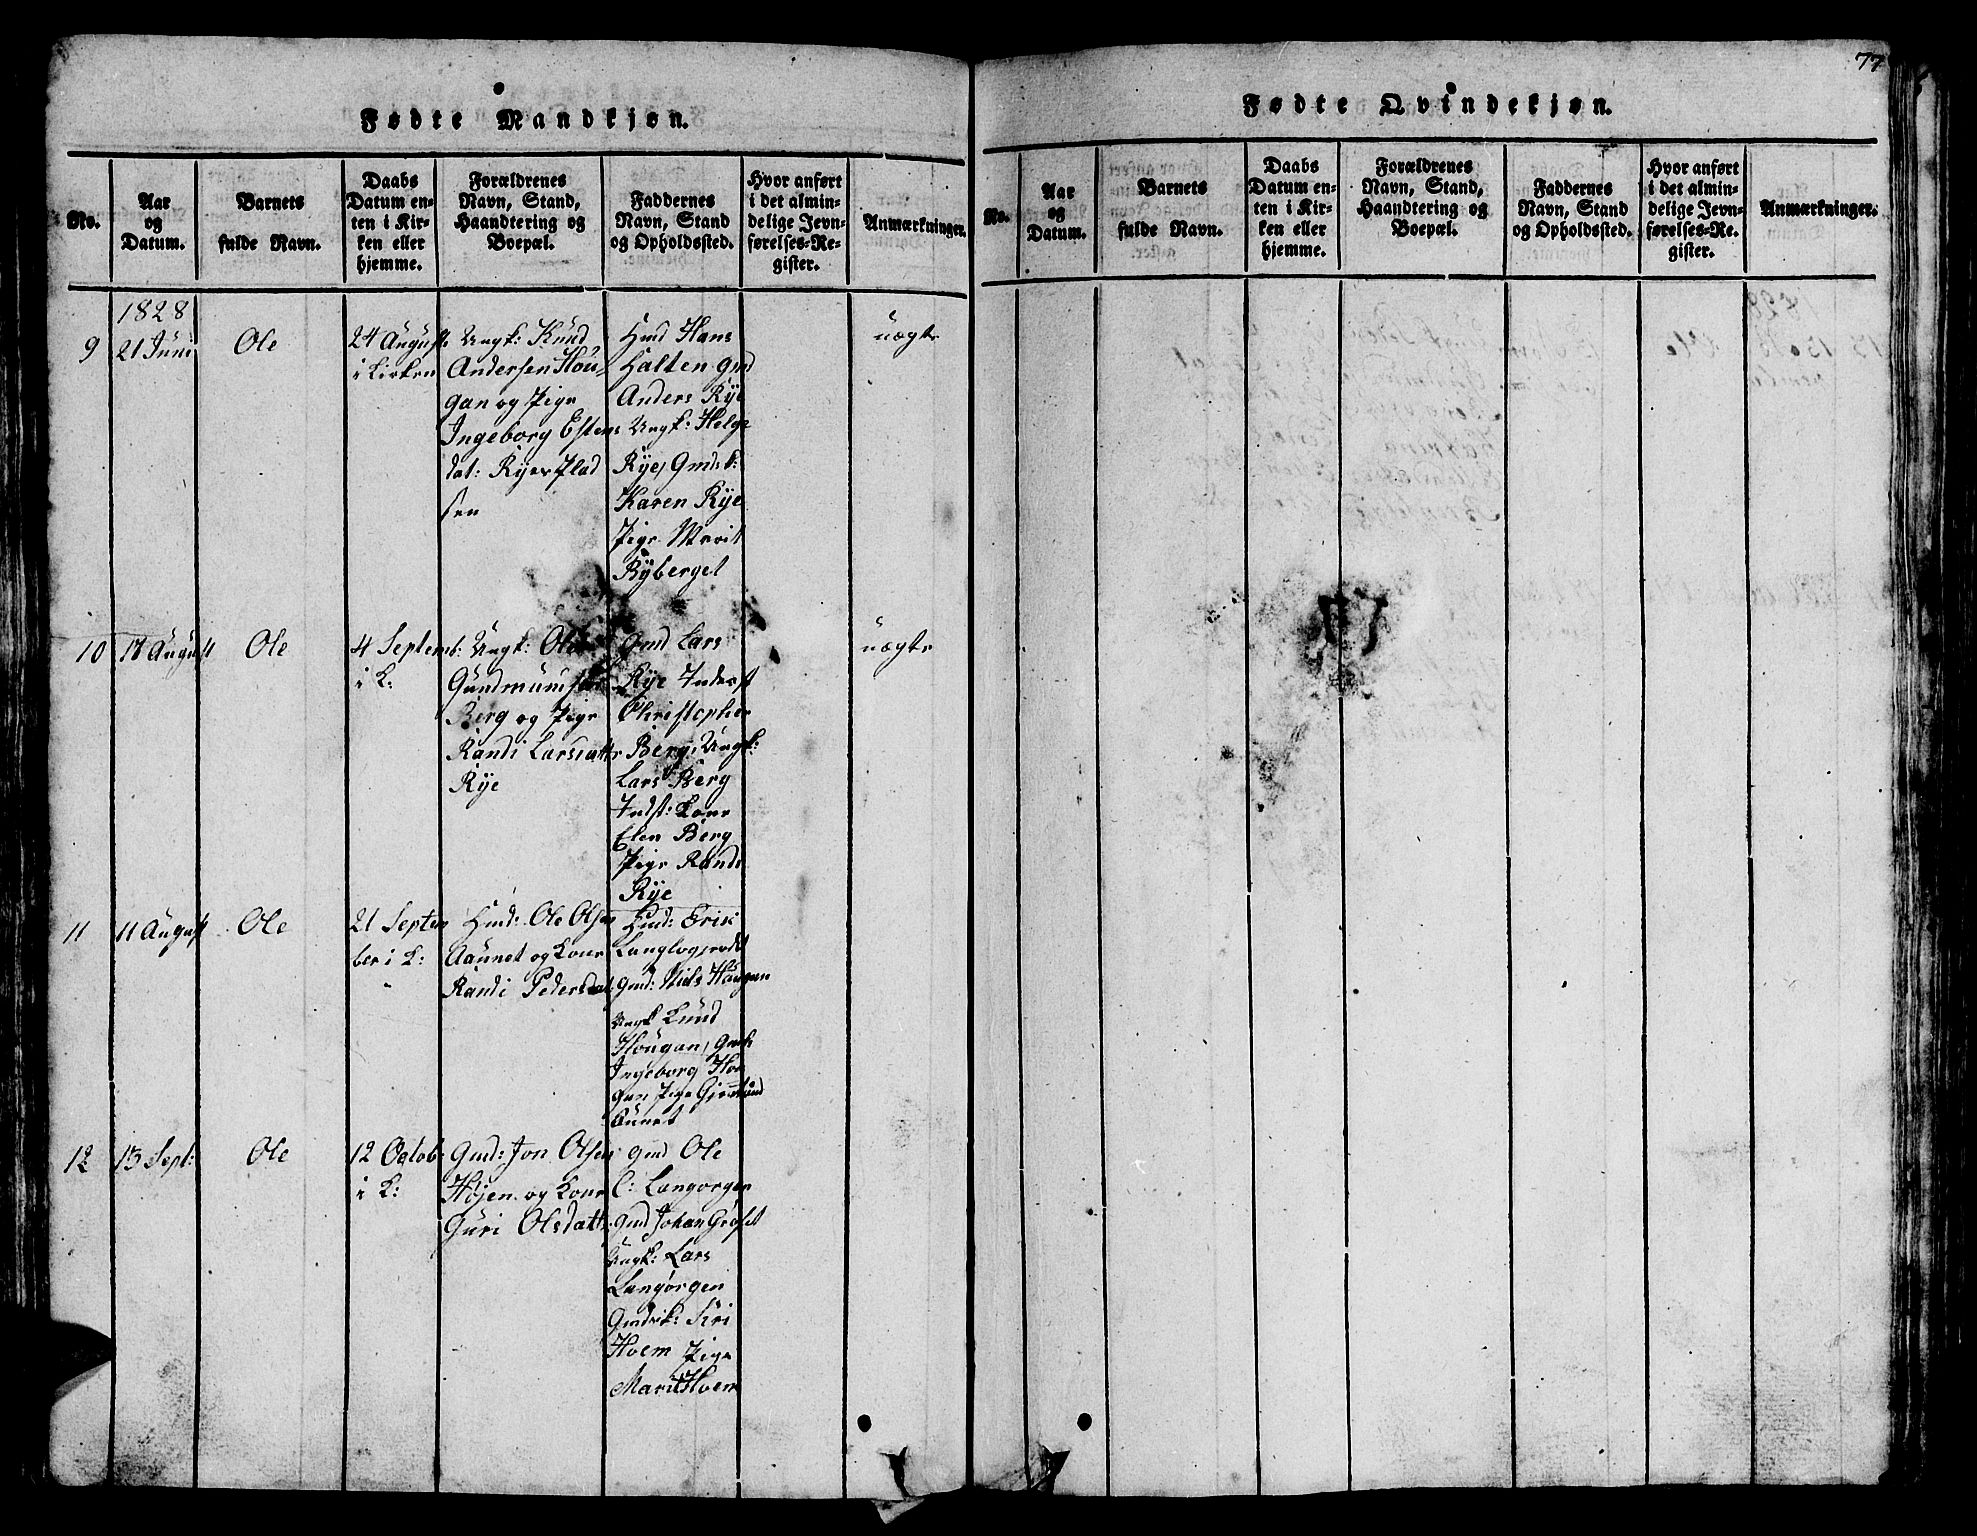 77
Fødte Mandkjøn.
No.
Aar
og
Datum.
Barnets
fulde Navn.
Daabs
Datum en-
ten i Kir-
ken eller
hjemme.
Forældrenes
Navn, Stand,
Haandtering og
Boepæl.
Faddernes
Navn, Stand
og Opholdssted.
Hvor anført
i det almin-
delige Jevn-
førelses-Re-
gister.
Anmærkninger.
1828
9
21 Juni
Ole
24 August
i Kirken
Ungk: Knud
Andersen Hou-
gan og Pige
Ingeborg Estens
dat: Ryer Plad
sen
Hmd Hans
Halten Gmd
Anders Rye
Ungk: Helge
Rye, Gmdsk:
Karen Rye
Pige Marit
Ryberget
uægte
10
August
Ole
4 Septemb:
i K:
Ungk: Ole
Gundmundsen
Berg og Pige
Randi Larsdattr
Rye
Gmd Lars
Rye Inderst
Christopher
Berg, Ungk:
Lars Berg
Indst: Kone
Elen Berg
Pige Randi
Rye
uægte
11
11 August
Ole
21 Septem
ber i K:
Hmd: Ole Olsen
Aunet og Kone
Randi Pedersdat:
Hmd: Erik
Langlo
Gmd: Niels Haugan
Ungk Knud
Hougan, Gmds
Ingeborg Hou
gan Pige
Aunet
12
13 Sept:
Ole
12 Octob:
i K:
Gmd: Jon Olsen
Højen og Kone
Guri Olsdattr
Gmd Ole
C: Langorgen
Gmd Johan Groset
Ungk: Lars
Langørgen
Gmdsk: Siri
Hoem Pige
Marit Hoem
Fødte Qvindekjøn.
No.
Aar
og
Datum.
Barnets
fulde Navn.
Daabs
Datum en-
ten i Kir-
ken eller
hjemme.
Forældrenes
Navn, Stand,
Haandtering og
Boepæl.
Faddernes
Navn, Stand
og Opholdssted.
Hvor anført
i det almin-
delige Jevn-
førelses-Re-
gister.
Anmærkninger.